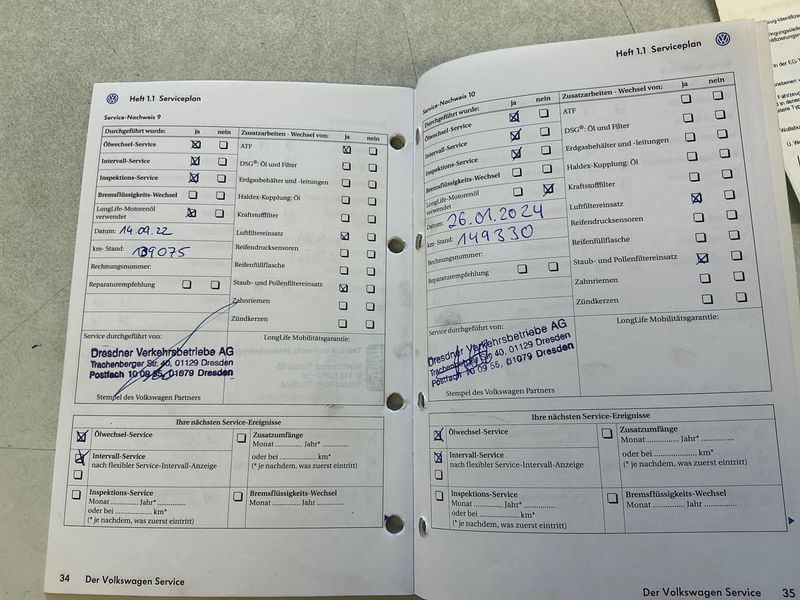 Heft 1.1 Serviceplan
Service-Nachweis 9
Durchgeführt wurde: ja nein
Ölwechsel-Service
Intervall-Service
Inspektions-Service
Bremsflüssigkeits-Wechsel
LongLife-Motorenöl
verwendet
Datum: 14.09.22
km-Stand: 139075
Rechnungsnummer:
Reparaturempfehlung
Zusatzarbeiten - Wechsel von: ja nein
ATF
DSG®: Öl und Filter
Erdgasbehälter und -leitungen
Haldex-Kupplung: Öl
Kraftstofffilter
Luftfiltereinsatz
Reifendrucksensoren
Reifenfüllflasche
Staub- und Pollenfiltereinsatz
Zahnriemen
Zündkerzen
Service durchgeführt von:
LongLife Mobilitätsgarantie:
Dresdner Verkehrsbetriebe AG
Trachenberger Str. 40, 01129 Dresden
Postfach 10 09 55, 01079 Dresden
Stempel des Volkswagen Partners
Ihre nächsten Service-Ereignisse
Ölwechsel-Service
Intervall-Service
nach flexibler Service-Intervall-Anzeige
Inspektions-Service
Monat ............. Jahr* ...............
oder bei ................. km*
(* je nachdem, was zuerst eintritt)
Zusatzumfänge
Monat ............. Jahr* ...............
oder bei ................. km*
(* je nachdem, was zuerst eintritt)
Bremsflüssigkeits-Wechsel
Monat ............. Jahr ...............
34 Der Volkswagen Service
Heft 1.1 Serviceplan
Service-Nachweis 10
Durchgeführt wurde: ja nein
Ölwechsel-Service
Intervall-Service
Inspektions-Service
Bremsflüssigkeits-Wechsel
LongLife-Motorenöl
verwendet
Datum: 26.01.2024
km-Stand: 149330
Rechnungsnummer:
Reparaturempfehlung
Zusatzarbeiten - Wechsel von: ja nein
ATF
DSG®: Öl und Filter
Erdgasbehälter und -leitungen
Haldex-Kupplung: Öl
Kraftstofffilter
Luftfiltereinsatz
Reifendrucksensoren
Reifenfüllflasche
Staub- und Pollenfiltereinsatz
Zahnriemen
Zündkerzen
Service durchgeführt von:
LongLife Mobilitätsgarantie:
Dresdner Verkehrsbetriebe AG
Trachenberger Str. 40, 01129 Dresden
Postfach 10 09 55, 01079 Dresden
Stempel des Volkswagen Partners
Ihre nächsten Service-Ereignisse
Ölwechsel-Service
Intervall-Service
nach flexibler Service-Intervall-Anzeige
Inspektions-Service
Monat ............. Jahr* ...............
oder bei ................. km*
(* je nachdem, was zuerst eintritt)
Zusatzumfänge
Monat ............. Jahr* ...............
oder bei ................. km*
(* je nachdem, was zuerst eintritt)
Bremsflüssigkeits-Wechsel
Monat ............. Jahr ...............
Der Volkswagen Service 35